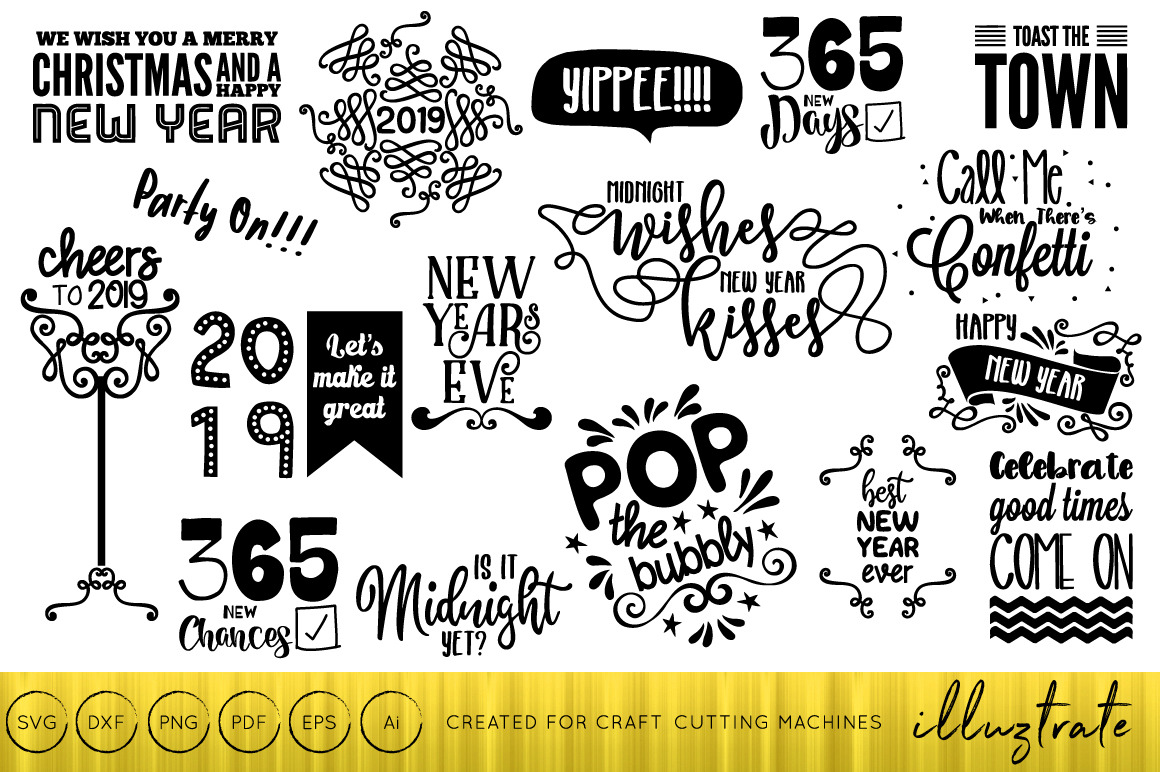 WE WISH YOU A MERRY
CHRISTMAS AND A HAPPY
NEW YEAR
2019
YIPPEE!!!!
365
NEW
Days
TOAST THE
TOWN
Party On!!!
MIDNIGHT
wishes
NEW YEAR
kisses
Call Me
When There's
Confetti
cheers
TO 2019
20
19
Let's
make it
great
NEW
YEARS
EVE
HAPPY
NEW YEAR
POP
the
bubbly
best
NEW
YEAR
ever
Celebrate
good times
COME ON
365
NEW
Chances
IS IT
Midnight
YET?
SVG
DXF
PNG
PDF
EPS
Ai
CREATED FOR CRAFT CUTTING MACHINES
illuztrate